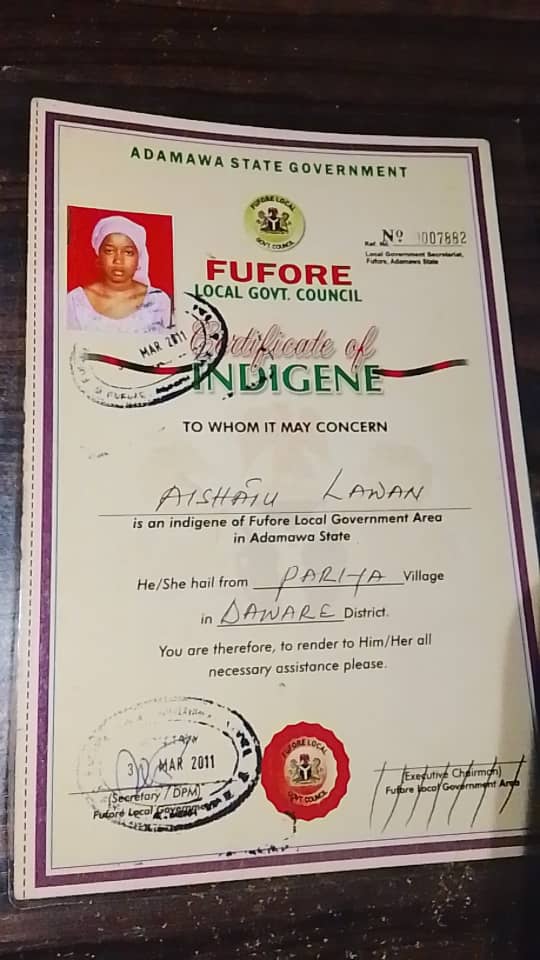 ADAMAWA STATE GOVERNMENT
FUFORE LOCAL
GOVT. COUNCIL
Nº 007882
Ref. No.
Local Government Secretariat,
Fufore, Adamawa State
FUFORE
LOCAL GOVT. COUNCIL
MAR 2011
Certificate of
INDIGENE
TO WHOM IT MAY CONCERN
AISHATU LAWAN
is an indigene of Fufore Local Government Area
in Adamawa State
He/She hail from PARIYA Village
in DAWARE District.
You are therefore, to render to Him/Her all
necessary assistance please.
MAR 2011
(Secretary / DPM)
Fufore Local Government
FUFORE LOCAL
GOVT. COUNCIL
(Executive Chairman)
Fufore Local Government Area